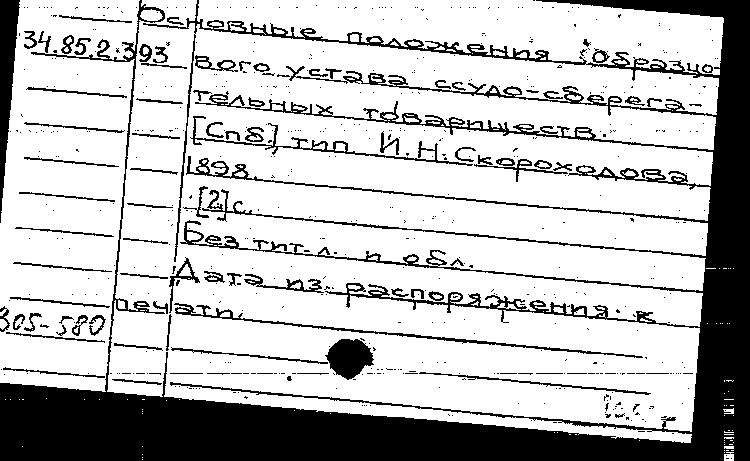 Основные положения Образцо-
34.85.2.393 вого устава ссудо-сберега-
тельных товариществ.
[Спб], тип И.Н.Скороходова,
1898.
[2]с.
Без тит.л. и обл.
Дата из распоряжения к
печати.
305-580